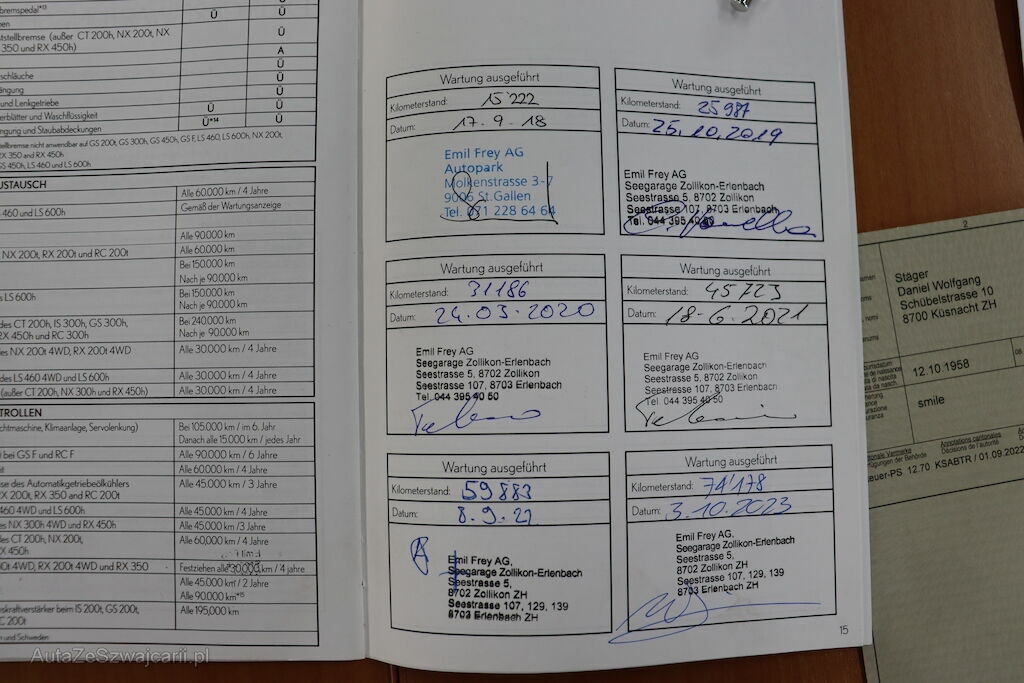 bremspedal*13
Ü Ü
tstellbremse (außer CT 200h, NX 200t, NX Ü
350 und RX 450h)
A
schläuche Ü
ängung Ü
und Lenkgetriebe Ü
erblätter und Waschflüssigkeit Ü Ü
ngung und Staubabdeckungen Ü*14 Ü
tellbremse nicht anwendbar auf GS 200t, GS 300h, GS 450h, GS F, LS 460, LS 600h, NX 200t,
RX 350 and RX 450h
GS 450h, LS 460 und LS 600h
USTAUSCH
Alle 60.000 km / 4 Jahre
460 und LS 600h Gemäß der Wartungsanzeige
Alle 90.000 km
NX 200t, RX 200t und RC 200t Alle 60.000 km
Bei 150.000 km
Nach je 90.000 km
LS 600h Bei 150.000 km
Nach je 90.000 km
des CT 200h, IS 300h, GS 300h, Bei 240.000 km
RX 450h und RC 300h Nach je 90.000 km
des NX 200t 4WD, RX 200t 4WD Alle 30.000 km / 4 Jahre
des LS 460 4WD und LS 600h Alle 30.000 km / 4 Jahre
(außer CT 200h, NX 300h und RX 450h) Alle 30.000 km / 4 Jahre
TROLLEN
chtmaschine, Klimaanlage, Servolenkung) Bei 105.000 km / im 6. Jahr
Danach alle 15.000 km / jedes Jahr
bei GS F und RC F Alle 90.000 km / 6 Jahre
Alle 60.000 km / 4 Jahre
se des Automatikgetriebeölkühlers Alle 45.000 km / 3 Jahre
RX 200t, RX 350 and RC 200t
460 4WD und LS 600h Alle 45.000 km / 4 Jahre
es NX 300h 4WD und RX 450h Alle 45.000 km /3 Jahre
des CT 200h, NX 200t, Alle 60,000 km / 4 Jahre
X 450h
00t 4WD, RX 200t 4WD und RX 350 Festziehen alle 30.000 km / 4 jahre
Alle 45.000 km / 2 Jahre
Alle 90.000 km*15
skraftverstärker beim IS 200t, GS 200t, Alle 195,000 km
C 200t
n und Schweden
Wartung ausgeführt
Kilometerstand: 15'222
Datum: 17.9-18
Emil Frey AG
Autopark
Molkenstrasse 3-7
9006 St.Gallen
Tel. 071 228 64 64
Wartung ausgeführt
Kilometerstand: 25987
Datum: 25.10.2019
Emil Frey AG
Seegarage Zollikon-Erlenbach
Seestrasse 5, 8702 Zollikon
Seestrasse 107, 8703 Erlenbach
Tel. 044 395 40 50
Wartung ausgeführt
Kilometerstand: 31186
Datum: 24.03.2020
Emil Frey AG
Seegarage Zollikon-Erlenbach
Seestrasse 5, 8702 Zollikon
Seestrasse 107, 8703 Erlenbach
Tel. 044 395 40 50
Wartung ausgeführt
Kilometerstand: 45723
Datum: 18-6.2021
Emil Frey AG
Seegarage Zollikon-Erlenbach
Seestrasse 5, 8702 Zollikon
Seestrasse 107, 8703 Erlenbach
Tel. 044 395 40 50
Wartung ausgeführt
Kilometerstand: 59883
Datum: 8.9.22
Emil Frey AG,
Seegarage Zollikon-Erlenbach
Seestrasse 5,
8702 Zollikon ZH
Seestrasse 107, 129, 139
8703 Erlenbach ZH
Wartung ausgeführt
Kilometerstand: 74'178
Datum: 3.10.2023
Emil Frey AG,
Seegarage Zollikon-Erlenbach
Seestrasse 5,
8702 Zollikon ZH
Seestrasse 107, 129, 139
8703 Erlenbach ZH
15
2
Stäger
Daniel Wolfgang
Schübelstrasse 10
8700 Küsnacht ZH
12.10.1958
smile
Annotations cantonales
fügungen der Behörde Décisions de l'autorité
euer-PS 12.70 KSABTR / 01.09.2022
AutaZeSzwajcarii.pl